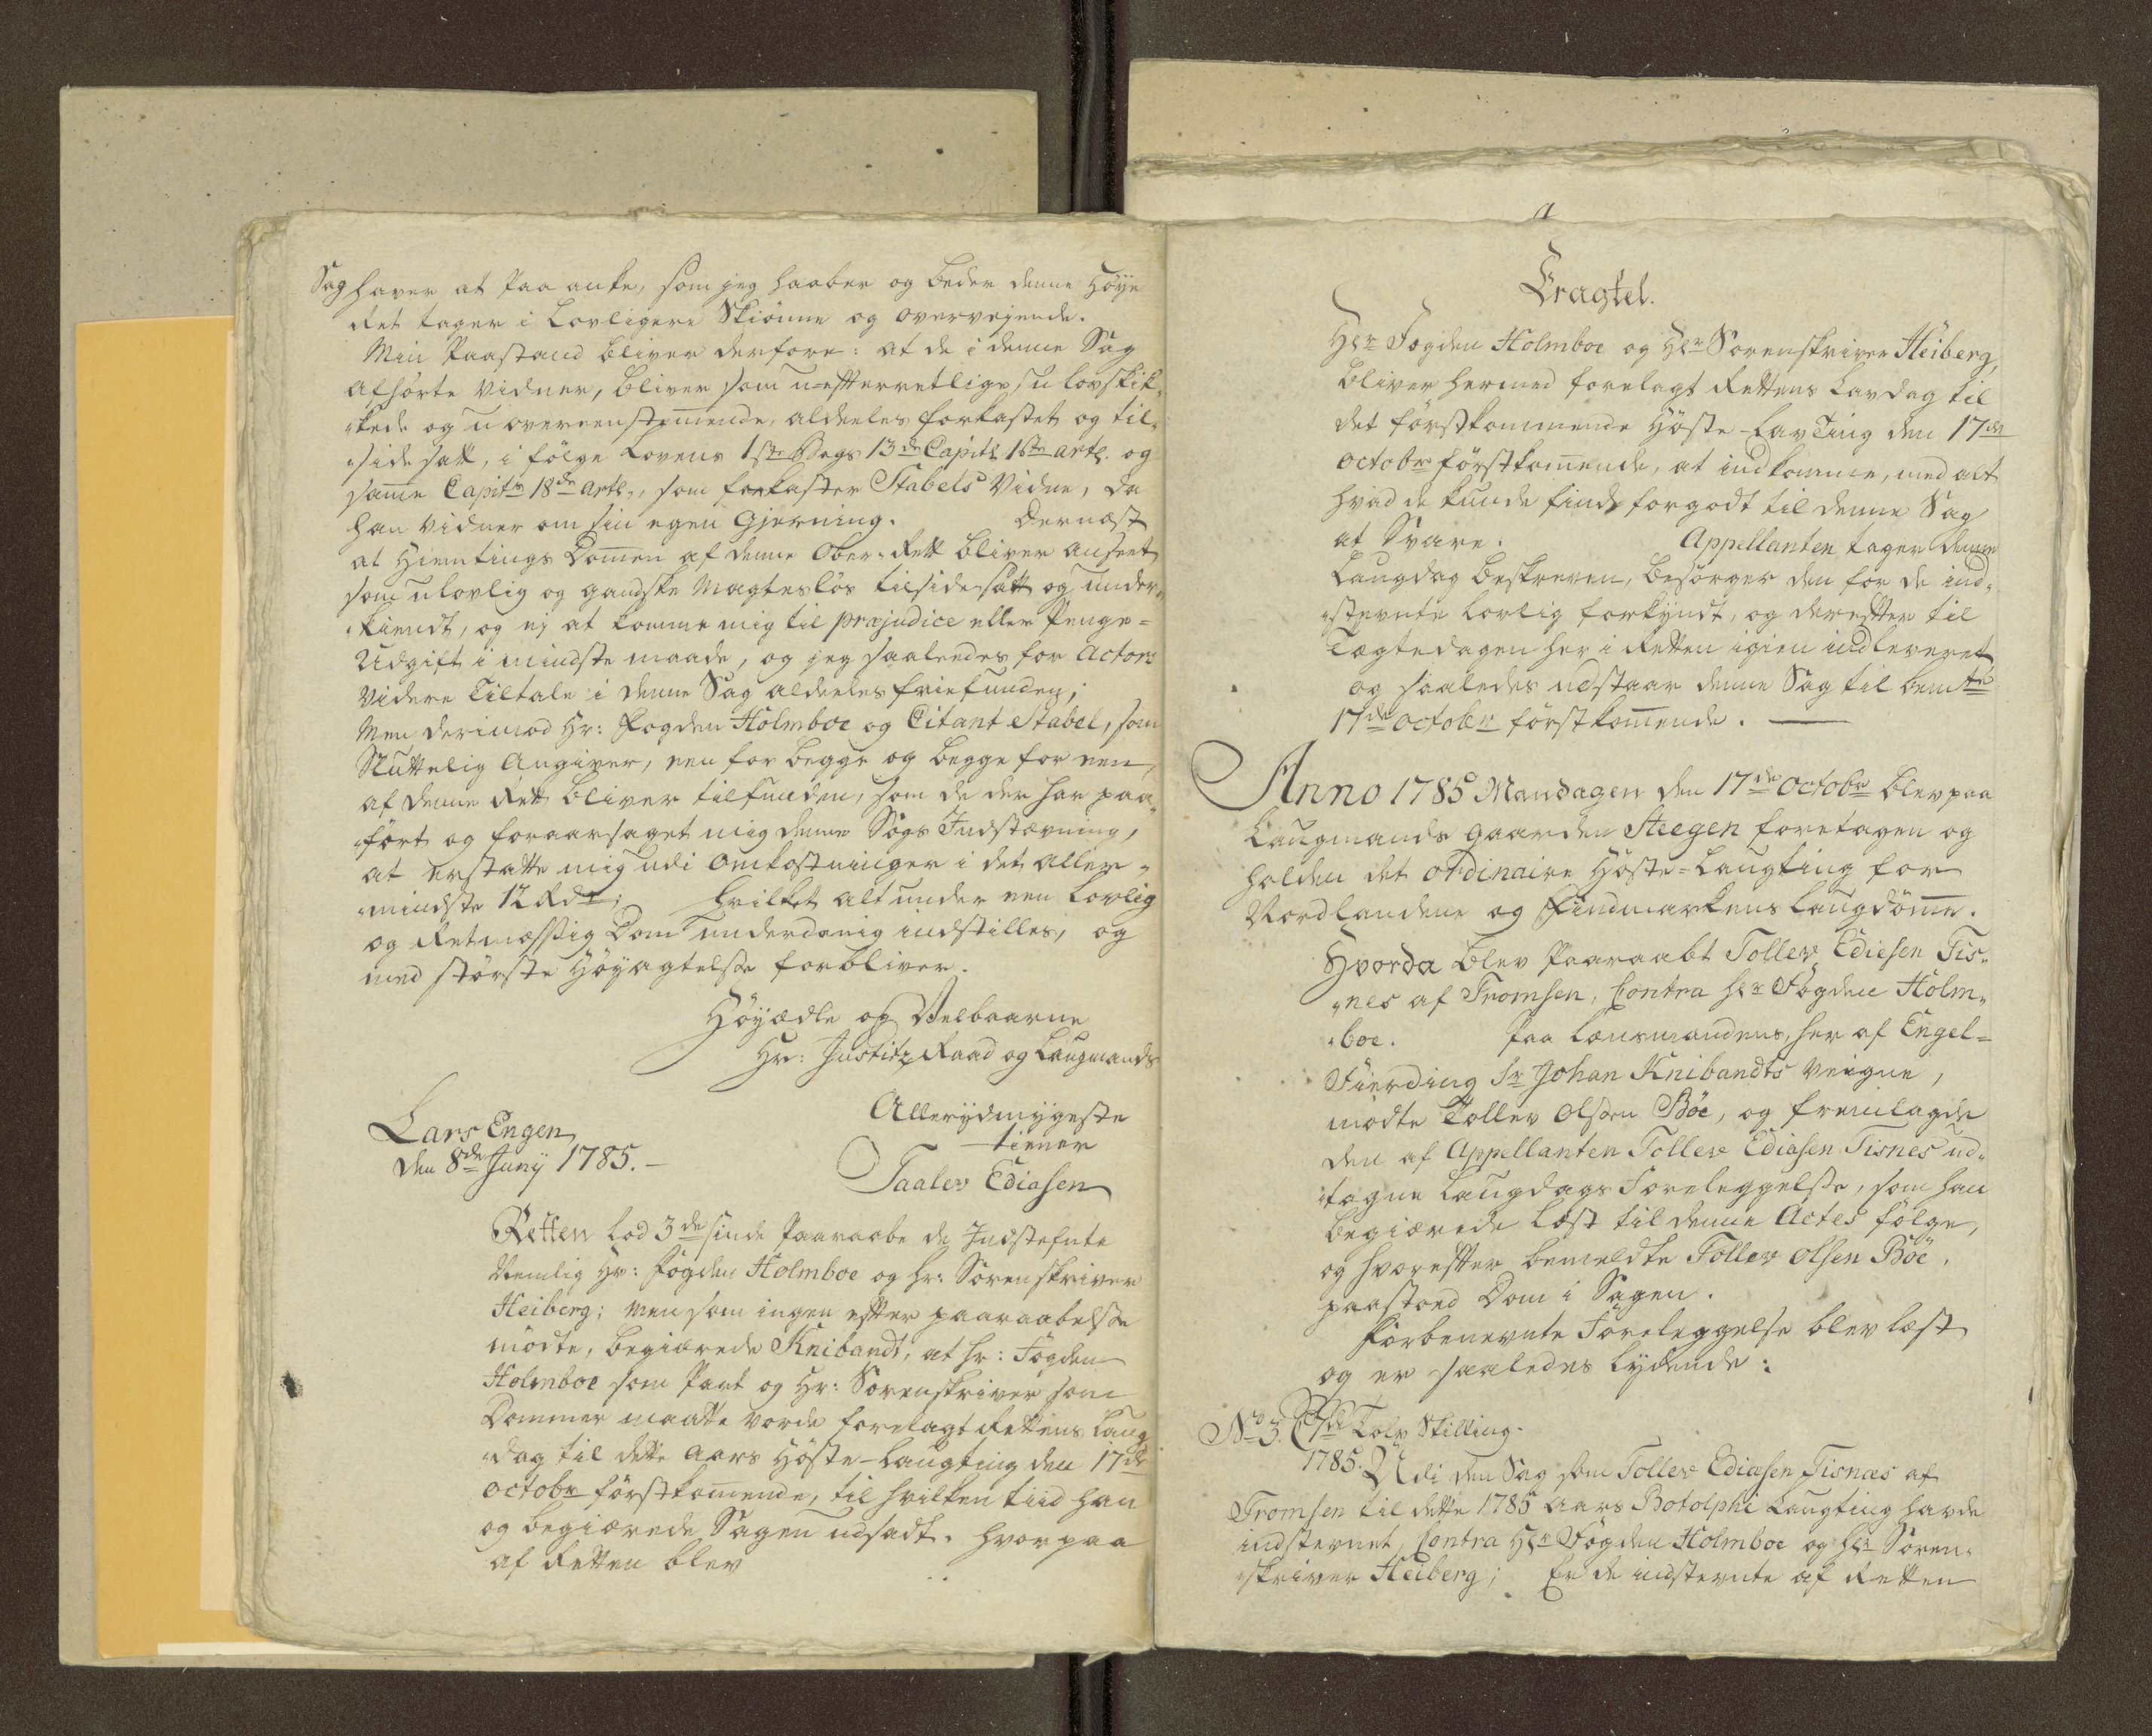 Sag haver at paa anke, som jeg haaber og beder denne Höye
Ret tager i Lovligere Skiönne og overvejende.
Min Paastand bliver derfore: at de i denne Sag
afhörte vidner, bliver som u-efterrettlige, ulovskik-
„kede og uovereenstemende, aldeeles forkastet og til-
„side satt, i fölge Lovens 1ste Bogs 13de Capitl 1ste artl. og
same Capitls 18de artl., som forkaster Stabels Vidne, da
han vidner om sin egen Gjerning. Dernæst
at Hiemtings Domen af denne Ober-Rett bliver anseet
som ulovlig og gandske Magteslös tilside-satt og under„
„kiendt, og ej at komme mig til præjudice eller Penge-
Udgift i mindste maade, og jeg saaledes for Actors
videre Tiltale i denne Sag aldeeles friefunden;
Men derimod Hr: Fogden Holmboe og Citant Stabel, som
Sluttelig Angiver, een for begge og begge for een,
af denne Rett bliver tilfunden, som de der har paa„
„fört og foraarsaget mig denne Sags Indstævning,
at erstatte mig udi omkostninger i det aller-
„mindste 12 Rdr; hvilket alt under een Lovlig
og Retmæssig Dom underdanig indstilles, og
med störste Höyagtelse forbliver.
Höyædle og Velbaarne
Hr: Justitz Raad og Laugmands
Allerydmygeste
tiener
Lars Engen
den 8de Junij 1785.-
Taalev Ediasen
Retten lod 3de sinde Paaraabe de Indstefnte
Nemlig Hr: Fogden Holmboe og Hr: Sorenskriver
Heiberg; men som ingen efter paaraabelse
mödte, begiærede Knibandt, at Hr: Fogden
Holmboe som Part og Hr: Sorenskriver som
Dommer maatte vorde forelagt Rettens Laug
„dag til dette Aars Höste-Laugting den 17de
Octobr förstkomende, til hvilken tiid han
og begiærede Sagen udsadt. hvorpaa
af Retten blev
Eragtet.
Hr Fogden Holmboe og Hr Sorenskriver Heiberg,
bliver hermed forelagt Rettens Lavdag til
det förstkommende Höste-LavTing den 17de
octobr förstkomende, at indkomme, med alt
hvad de kunde finde forgodt til denne Sag
at Svare. Appellanten tager denne
Laugdag beskreven, besörger den for de ind-
„stevnte lovlig forkyndt, og derefter til
Tægtedagen her i Retten igien indleveret
og saaledes udstaar denne Sag til bemte
17de octobr förstkomende. —
Anno 1785 Mandagen den 17de Octobr blev paa
Laugmands gaarden Steegen foretagen og
holden det ordinaire Höste-Laugting for
Nordlandene og Findmarkens Laugdömme.
Hvorda blev Paaraabt Tollev Ediesen Tis-
„nes af Tromsen, Contra Hr Fogden Holm„
„boe. Paa Lensmandens, her af Engel-
Fierding Sr Johan Knibandts Veigne,
mödte Tollev Olsen Böe, og fremlagde
den af Appellanten Tollev Ediasen Tisnes ud-
„tagne Laugdags Foreleggelse, som han
begiærede læst til denne Actes fölge,
og hvorefter bemeldte Tollev Olsen Böe,
paastoed Dom i Sagen.
Forbenevnte Foreleggelse blev læst
og er saaledes lydende:
No 3. Tolv Skilling.
1785. Udi den Sag som Tollev Ediasen Tisnæs af
Tromsen til dette 1785 Aars Botolphi Laugting havde
indstevnet, Contra Hr Fogden Holmboe og Hr Soren-
„skriver Heiberg; Er de indstevnte af Retten